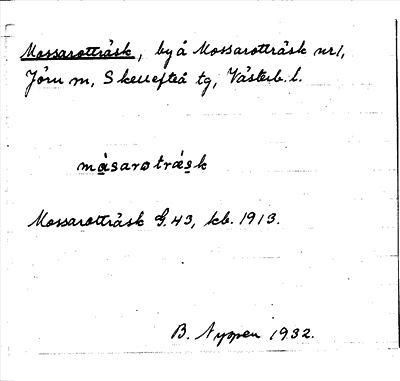 Mossarotträsk, by å Mossarotträsk nr 1,
Jörn m, Skellefteå tg, Västerb. l.
måsarotræsk
Mossarotträsk G. 43, kb. 1913.
B. Nyman 1932.